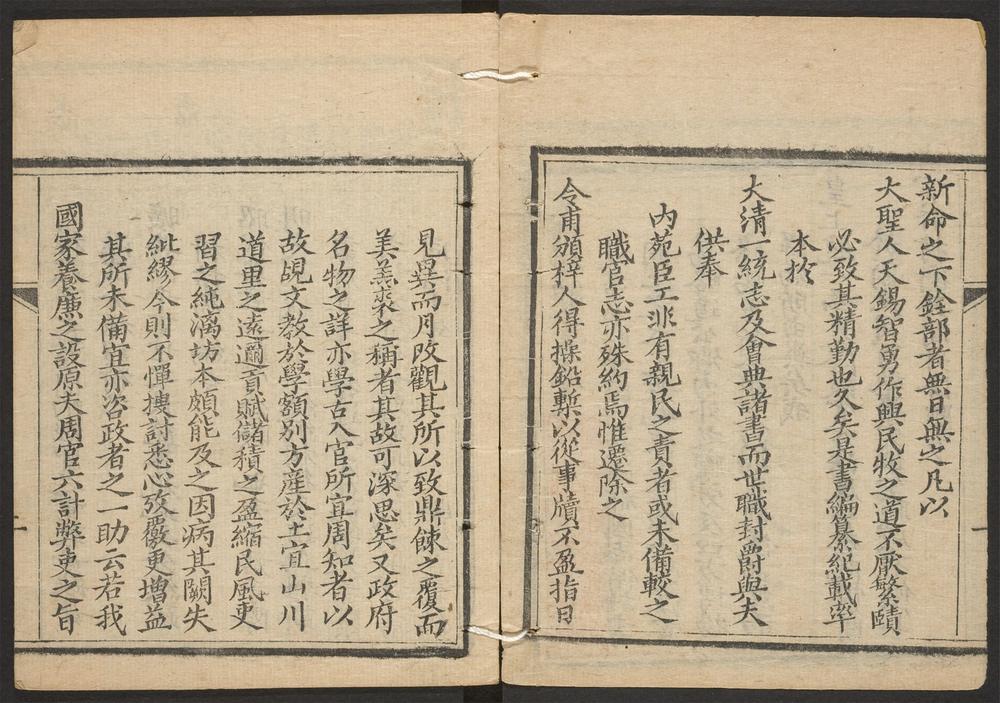 新命之下銓部者無日無之凡以
大聖人天錫智勇作興民牧之道不厭繁賾
必致其精勤也久矣是書編纂紀載率
本於
大清一統志及會典諸書而世職封爵與夫
供奉
內苑臣工非有親民之責者或未備較之
職官志亦殊約焉惟遷除之
令甫頒梓人得操鉛槧以從事牘不盈指日
見異而月攺觀其所以致鼎餗之覆而
美羔裘之稱者其故可深思矣又政府
名物之詳亦學古入官所宜周知者以
故覘文教於學額別方產於土宜山川
道里之遠邇貢賦儲積之盈縮民風吏
習之純漓坊本頗能及之因病其闕失
紕繆今則不憚搜討悉心攷覈更增益
其所未備宜亦咨政者之一助云若我
國家養廉之設原夫周官六計弊吏之旨